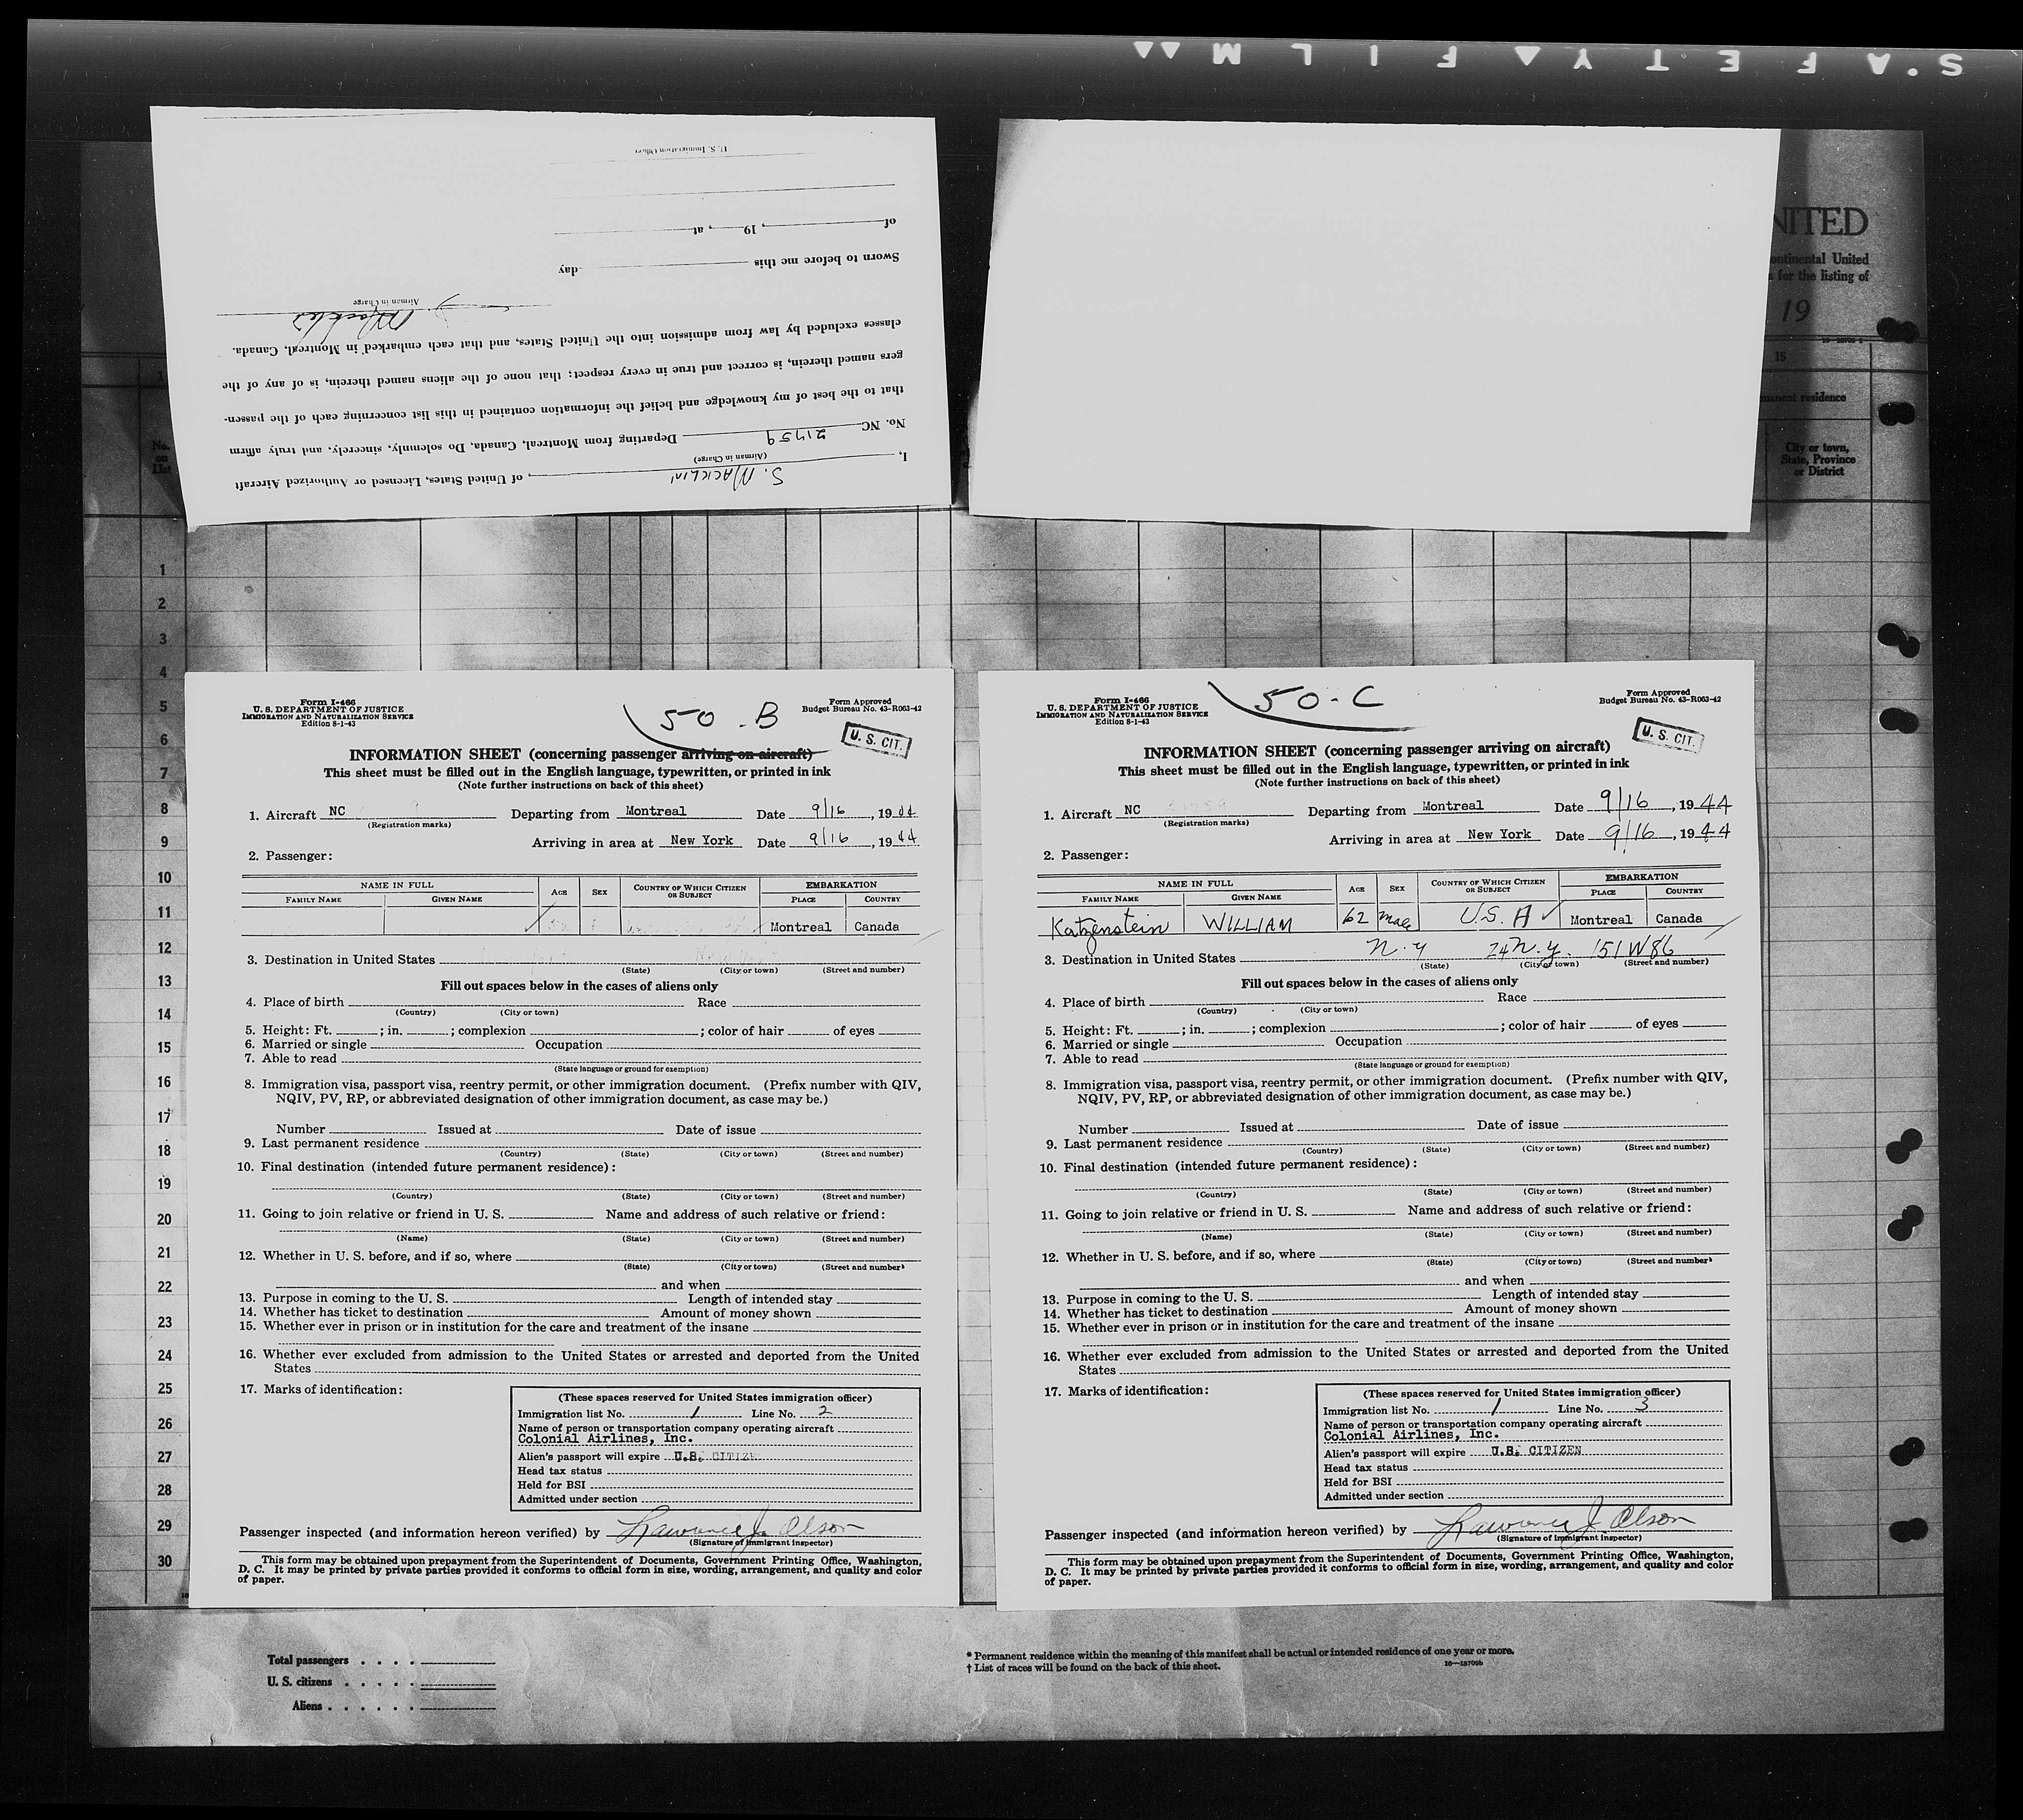 S·AFETY▲FILM▲▲
U. S. Immigration Officer
of ____, 19__, at ____
Sworn to before me this ____ day
Airman in Charge
S. Macklin
classes excluded by law from admission into the United States, and that each embarked in Montreal, Canada.
gers named therein, is correct and true in every respect; that none of the aliens named therein, is of any of the
that to the best of my knowledge and belief the information contained in this list concerning each of the passen-
No. NC 21759 Departing from Montreal, Canada, Do solemnly, sincerely, and truly affirm
(Airman in Charge)
I, S. MACKLIN, of United States, Licensed or Authorized Aircraft
NITED
ontinental United
s for the listing of
19
16—18709 1
15
manent residence
City or town,
State, Province
or District
1
No.
on
List
1
2
3
4
5
6
7
8
9
10
11
12
13
14
15
16
17
18
19
20
21
22
23
24
25
26
27
28
29
30
Form I-466
U. S. DEPARTMENT OF JUSTICE
IMMIGRATION AND NATURALIZATION SERVICE
Edition 8-1-43
50 - B
Form Approved
Budget Bureau No. 43-R063-42
U. S. CIT.
INFORMATION SHEET (concerning passenger arriving on aircraft)
This sheet must be filled out in the English language, typewritten, or printed in ink
(Note further instructions on back of this sheet)
1. Aircraft NC Departing from Montreal Date 9/16, 1944
(Registration marks)
Arriving in area at New York Date 9/16, 1944
2. Passenger:
NAME IN FULL AGE SEX COUNTRY OF WHICH CITIZEN OR SUBJECT EMBARKATION
FAMILY NAME GIVEN NAME PLACE COUNTRY
Montreal Canada
3. Destination in United States
(State) (City or town) (Street and number)
Fill out spaces below in the cases of aliens only
4. Place of birth Race
(Country) (City or town)
5. Height: Ft. ; in. ; complexion ; color of hair of eyes
6. Married or single Occupation
7. Able to read
(State language or ground for exemption)
8. Immigration visa, passport visa, reentry permit, or other immigration document. (Prefix number with QIV,
NQIV, PV, RP, or abbreviated designation of other immigration document, as case may be.)
Number Issued at Date of issue
9. Last permanent residence
(Country) (State) (City or town) (Street and number)
10. Final destination (intended future permanent residence):
(Country) (State) (City or town) (Street and number)
11. Going to join relative or friend in U. S. Name and address of such relative or friend:
(Name) (State) (City or town) (Street and number)
12. Whether in U. S. before, and if so, where
(State) (City or town) (Street and number)
and when
13. Purpose in coming to the U. S. Length of intended stay
14. Whether has ticket to destination Amount of money shown
15. Whether ever in prison or in institution for the care and treatment of the insane
16. Whether ever excluded from admission to the United States or arrested and deported from the United
States
17. Marks of identification:
(These spaces reserved for United States immigration officer)
Immigration list No. 1 Line No. 2
Name of person or transportation company operating aircraft
Colonial Airlines, Inc.
Alien's passport will expire U.S. CITIZEN
Head tax status
Held for BSI
Admitted under section
Passenger inspected (and information hereon verified) by Lawrence J. Olson
(Signature of Immigrant Inspector)
This form may be obtained upon prepayment from the Superintendent of Documents, Government Printing Office, Washington,
D. C. It may be printed by private parties provided it conforms to official form in size, wording, arrangement, and quality and color
of paper.
Form I-466
U. S. DEPARTMENT OF JUSTICE
IMMIGRATION AND NATURALIZATION SERVICE
Edition 8-1-43
50 - C
Form Approved
Budget Bureau No. 43-R063-42
U. S. CIT.
INFORMATION SHEET (concerning passenger arriving on aircraft)
This sheet must be filled out in the English language, typewritten, or printed in ink
(Note further instructions on back of this sheet)
1. Aircraft NC 21759 Departing from Montreal Date 9/16, 1944
(Registration marks)
Arriving in area at New York Date 9/16, 1944
2. Passenger:
NAME IN FULL AGE SEX COUNTRY OF WHICH CITIZEN OR SUBJECT EMBARKATION
FAMILY NAME GIVEN NAME PLACE COUNTRY
Katzenstein WILLIAM 62 Male U.S. A Montreal Canada
3. Destination in United States N.Y 24 N.Y. 151 W 86
(State) (City or town) (Street and number)
Fill out spaces below in the cases of aliens only
4. Place of birth Race
(Country) (City or town)
5. Height: Ft. ; in. ; complexion ; color of hair of eyes
6. Married or single Occupation
7. Able to read
(State language or ground for exemption)
8. Immigration visa, passport visa, reentry permit, or other immigration document. (Prefix number with QIV,
NQIV, PV, RP, or abbreviated designation of other immigration document, as case may be.)
Number Issued at Date of issue
9. Last permanent residence
(Country) (State) (City or town) (Street and number)
10. Final destination (intended future permanent residence):
(Country) (State) (City or town) (Street and number)
11. Going to join relative or friend in U. S. Name and address of such relative or friend:
(Name) (State) (City or town) (Street and number)
12. Whether in U. S. before, and if so, where
(State) (City or town) (Street and number)
and when
13. Purpose in coming to the U. S. Length of intended stay
14. Whether has ticket to destination Amount of money shown
15. Whether ever in prison or in institution for the care and treatment of the insane
16. Whether ever excluded from admission to the United States or arrested and deported from the United
States
17. Marks of identification:
(These spaces reserved for United States immigration officer)
Immigration list No. 1 Line No. 3
Name of person or transportation company operating aircraft
Colonial Airlines, Inc.
Alien's passport will expire U.S. CITIZEN
Head tax status
Held for BSI
Admitted under section
Passenger inspected (and information hereon verified) by Lawrence J. Olson
(Signature of Immigrant Inspector)
This form may be obtained upon prepayment from the Superintendent of Documents, Government Printing Office, Washington,
D. C. It may be printed by private parties provided it conforms to official form in size, wording, arrangement, and quality and color
of paper.
Total passengers . . . .
U. S. citizens . . . . .
Aliens . . . . . .
* Permanent residence within the meaning of this manifest shall be actual or intended residence of one year or more.
† List of races will be found on the back of this sheet.
16—18709b